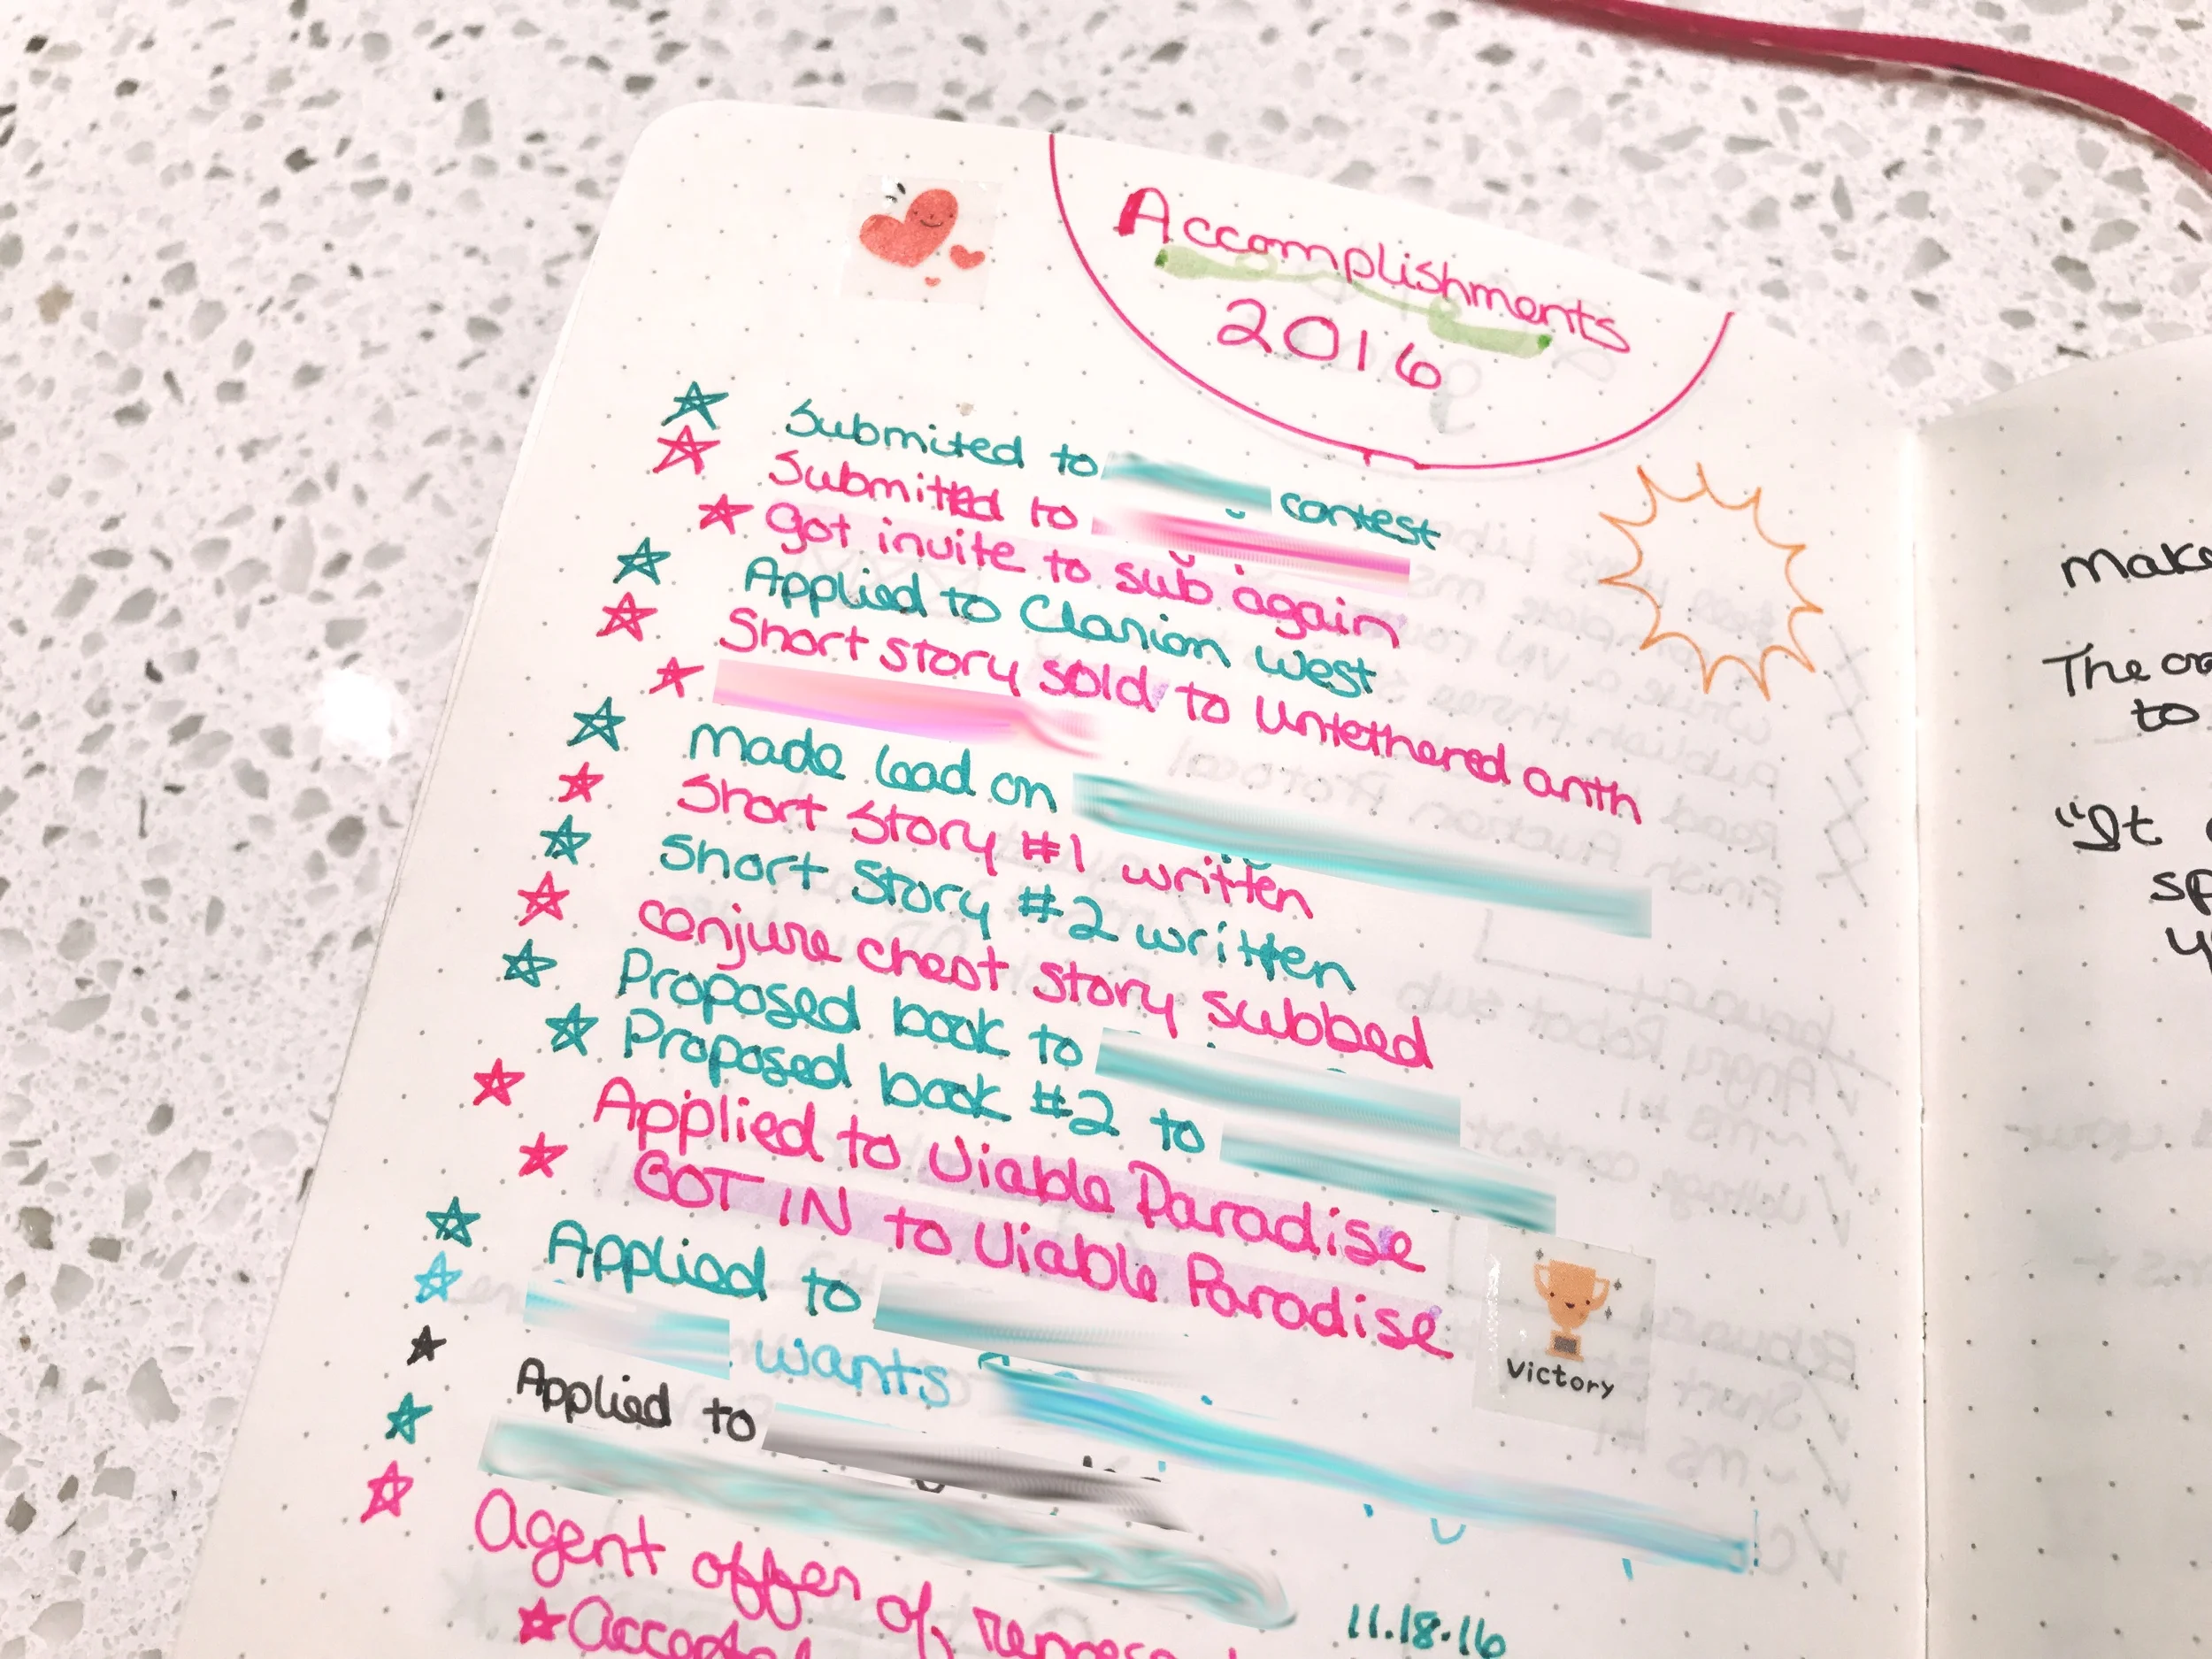 Accomplishments
2016
Submited to contest
Submitted to
Got invite to sub again
Applied to Clarion West
Short story sold to Untethered anth
Made lead on
Short Story #1 written
Short Story #2 written
conjure chest story subbed
Proposed book to
Proposed book #2 to
Applied to Viable Paradise
GOT IN to Viable Paradise
Applied to
Victory
wants
Applied to
Agent offer of
11.18.16
Make
The
to
"It